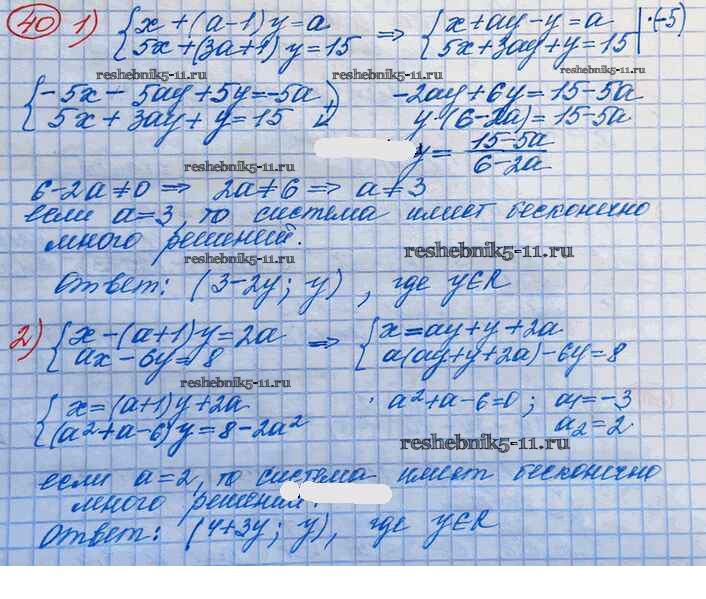 40 1) { x + (a-1) y = a ⇒ { x + ay - y = a | ·(-5)
5x + (3a+1) y = 15 5x + 3ay + y = 15
reshebnik5-11.ru reshebnik5-11.ru
{ -5x - 5ay + 5y = -5a -2ay + 6y = 15-5a
5x + 3ay + y = 15 y (6-2a) = 15-5a
reshebnik5-11.ru y = 15-5a / 6-2a
6-2a ≠ 0 ⇒ 2a ≠ 6 ⇒ a ≠ 3
если a = 3, то система имеет бесконечно
много решений.
reshebnik5-11.ru reshebnik5-11.ru
Ответ: (3-2y; y), где y∈R
2) { x - (a+1) y = 2a ⇒ { x = ay + y + 2a
ax - 6y = 8 a(ay + y + 2a) - 6y = 8
reshebnik5-11.ru
{ x = (a+1) y + 2a · a² + a - 6 = 0 ; a₁ = -3
(a² + a - 6) y = 8 - 2a² a₂ = 2
reshebnik5-11.ru
если a = 2, то система имеет бесконечно
много решений.
Ответ: (4+3y; y), где y∈R